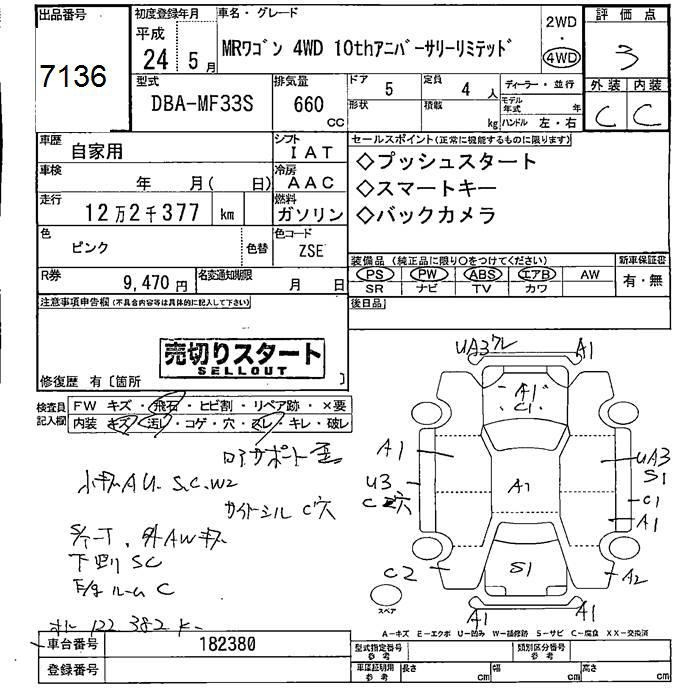 出品番号
7136
初度登録年月
平成
24 5月
車名・グレード
MRワゴン 4WD 10thアニバーサリーリミテッド
2WD
・
4WD
評価点
3
型式
DBA-MF33S
排気量
660
CC
ドア
5
定員
4 人
ディーラー・並行
形状
積載
kg
モデル年式 年
ハンドル 左・右
外装 内装
C C
車歴
自家用
シフト
IAT
セールスポイント(正常に機能するものに限ります)
◇プッシュスタート
◇スマートキー
◇バックカメラ
車検
年 月( 日)
冷房
AAC
走行
12万2千377 km
燃料
ガソリン
色
ピンク
色替
色コード
ZSE
装備品 (純正品に限り○をつけてください)
新車保証書
PS PW ABS エアB AW
SR ナビ TV カワ
有・無
R券
9,470円
名変通知期限
月 日
後日品
注意事項申告欄(不具合内容等は具体的に記入して下さい)
売切りスタート
SELLOUT
修復歴 有〔箇所 〕
検査員記入欄
FW キズ・飛石・ヒビ割・リペア跡・×要
内装 キズ・汚レ・コゲ・穴・ヌレ・キレ・破レ
ロアサポート
小キズAU. S.C.W2
サイドシル C穴
外AWキズ
下回りSC
ルームC
122382K
UA3 ワレ
A1
A1
C1
A1
UA3
S1
U3
C
穴
A1
C1
A1
C2
S1
A2
スペア
A1
A1
A-キズ E-エクボ U-凹み W-補修跡 S-サビ C-腐食 XX-交換済
車台番号
182380
登録番号
型式指定番号
参考
類別区分番号
参考
車庫証明用
参考
長さ cm
幅 cm
高さ cm